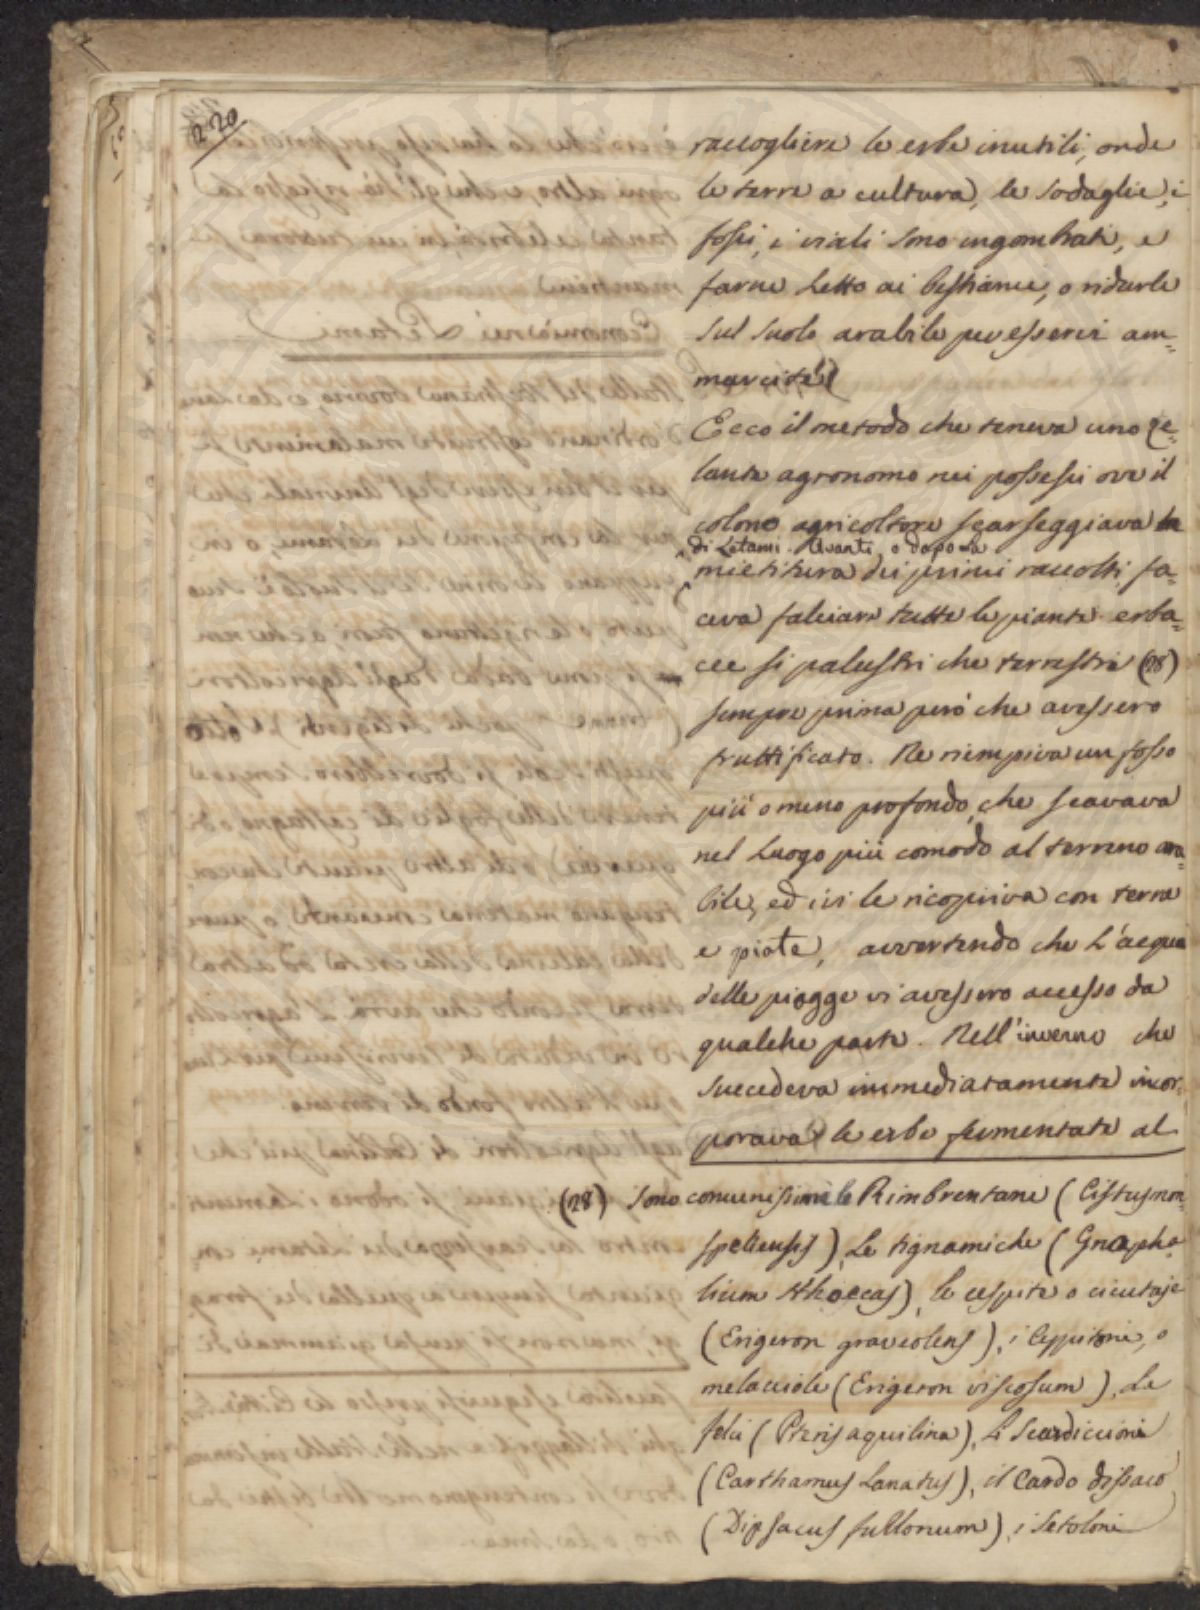 220
raccogliere le erbe inutili, onde
le terre a cultura, le sodaglie, i
fossi, i viali sono ingombrati, e
farne Letto ai bestiami, o ridurle
sul suolo arabile per esservi am=
marcite
Ecco il metodo che teneva uno ze=
lante agronomo nei possessi ove il
colono agricoltore scarseggiava
di Letami. Avanti, o dopo la
mietitura dei primi raccolti, fa=
ceva falciare tutte le piante erba=
cee si palustri che terrestri (28)
sempre prima però che avessero
fruttificato. Ne riempiva un fosso
più o meno profondo, che scavava
nel Luogo più comodo al terreno ara=
bile, ed ivi le ricopriva con terra
e piote, avvertendo che L'acqua
delle piogge vi avessero accesso da
qualche parte. Nell'inverno che
succedeva immediatamente incor=
porava le erbe fermentate al
(28) Sono comunissimi le Rimbrentani (Cistus mon=
speliensis), Le tignamiche (Gnapha=
lium sthoecas), le cespite o cicutaje
(Erigeron graveolens), i Ceppitoni, o
melacciole (Erigeron viscosum), La
felci (Pteris aquilina), Li Scardiccioni
(Carthamus Lanatus), il Cardo dissaco
(Dipsacus fullonum), i Setoloni